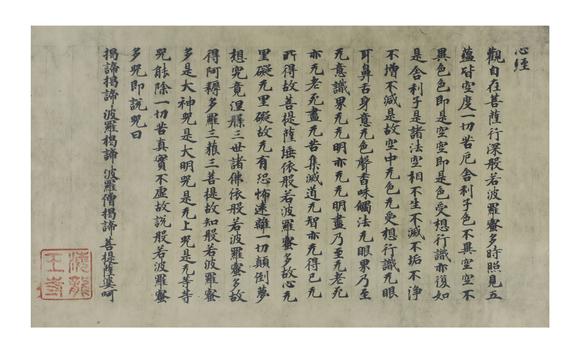 心經
觀自在菩薩行深般若波羅蜜多時照見五
蘊皆空度一切苦厄舍利子色不異空空不
異色色即是空空即是色受想行識亦復如
是舍利子是諸法空相不生不滅不垢不淨
不增不減是故空中无色无受想行識无眼
耳鼻舌身意无色聲香味觸法无眼界乃至
无意識界无无明亦无无明盡乃至无老死
亦无老死盡无苦集滅道无智亦无得已无
所得故菩提薩埵依般若波羅蜜多故心无
罣礙无罣礙故无有恐怖遠離一切顛倒夢
想究竟涅槃三世諸佛依般若波羅蜜多故
得阿耨多羅三藐三菩提故知般若波羅蜜
多是大神咒是大明咒是无上咒是无等等
咒能除一切苦真實不虛故說般若波羅蜜
多咒即說咒曰
揭諦揭諦波羅揭諦波羅僧揭諦菩提薩婆訶